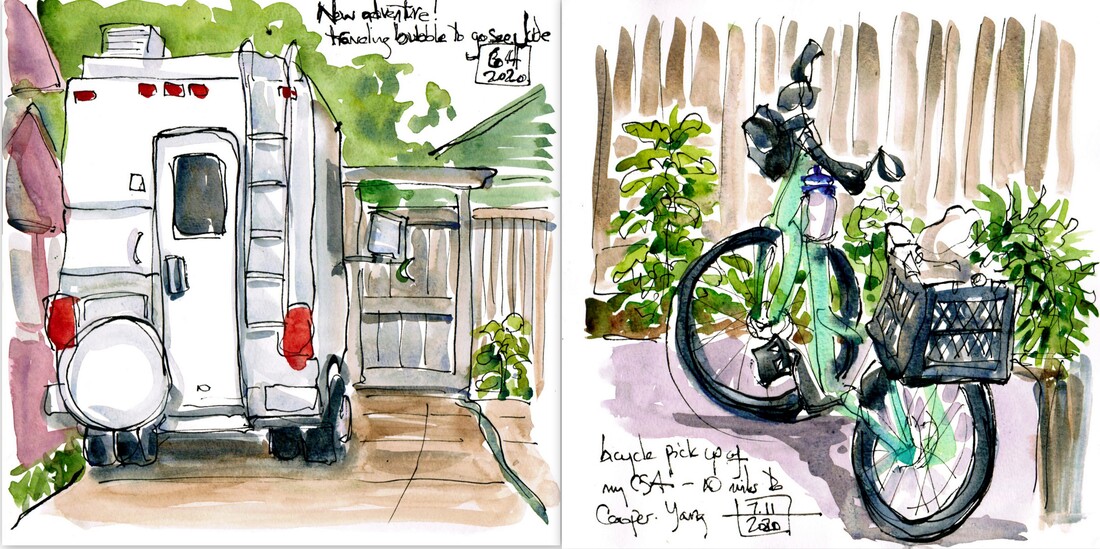 New adventure!
traveling bubble to go see
2020
bicycle pick up of
my CSA – 10 miles to
Cooper. Yang
7.11
2020